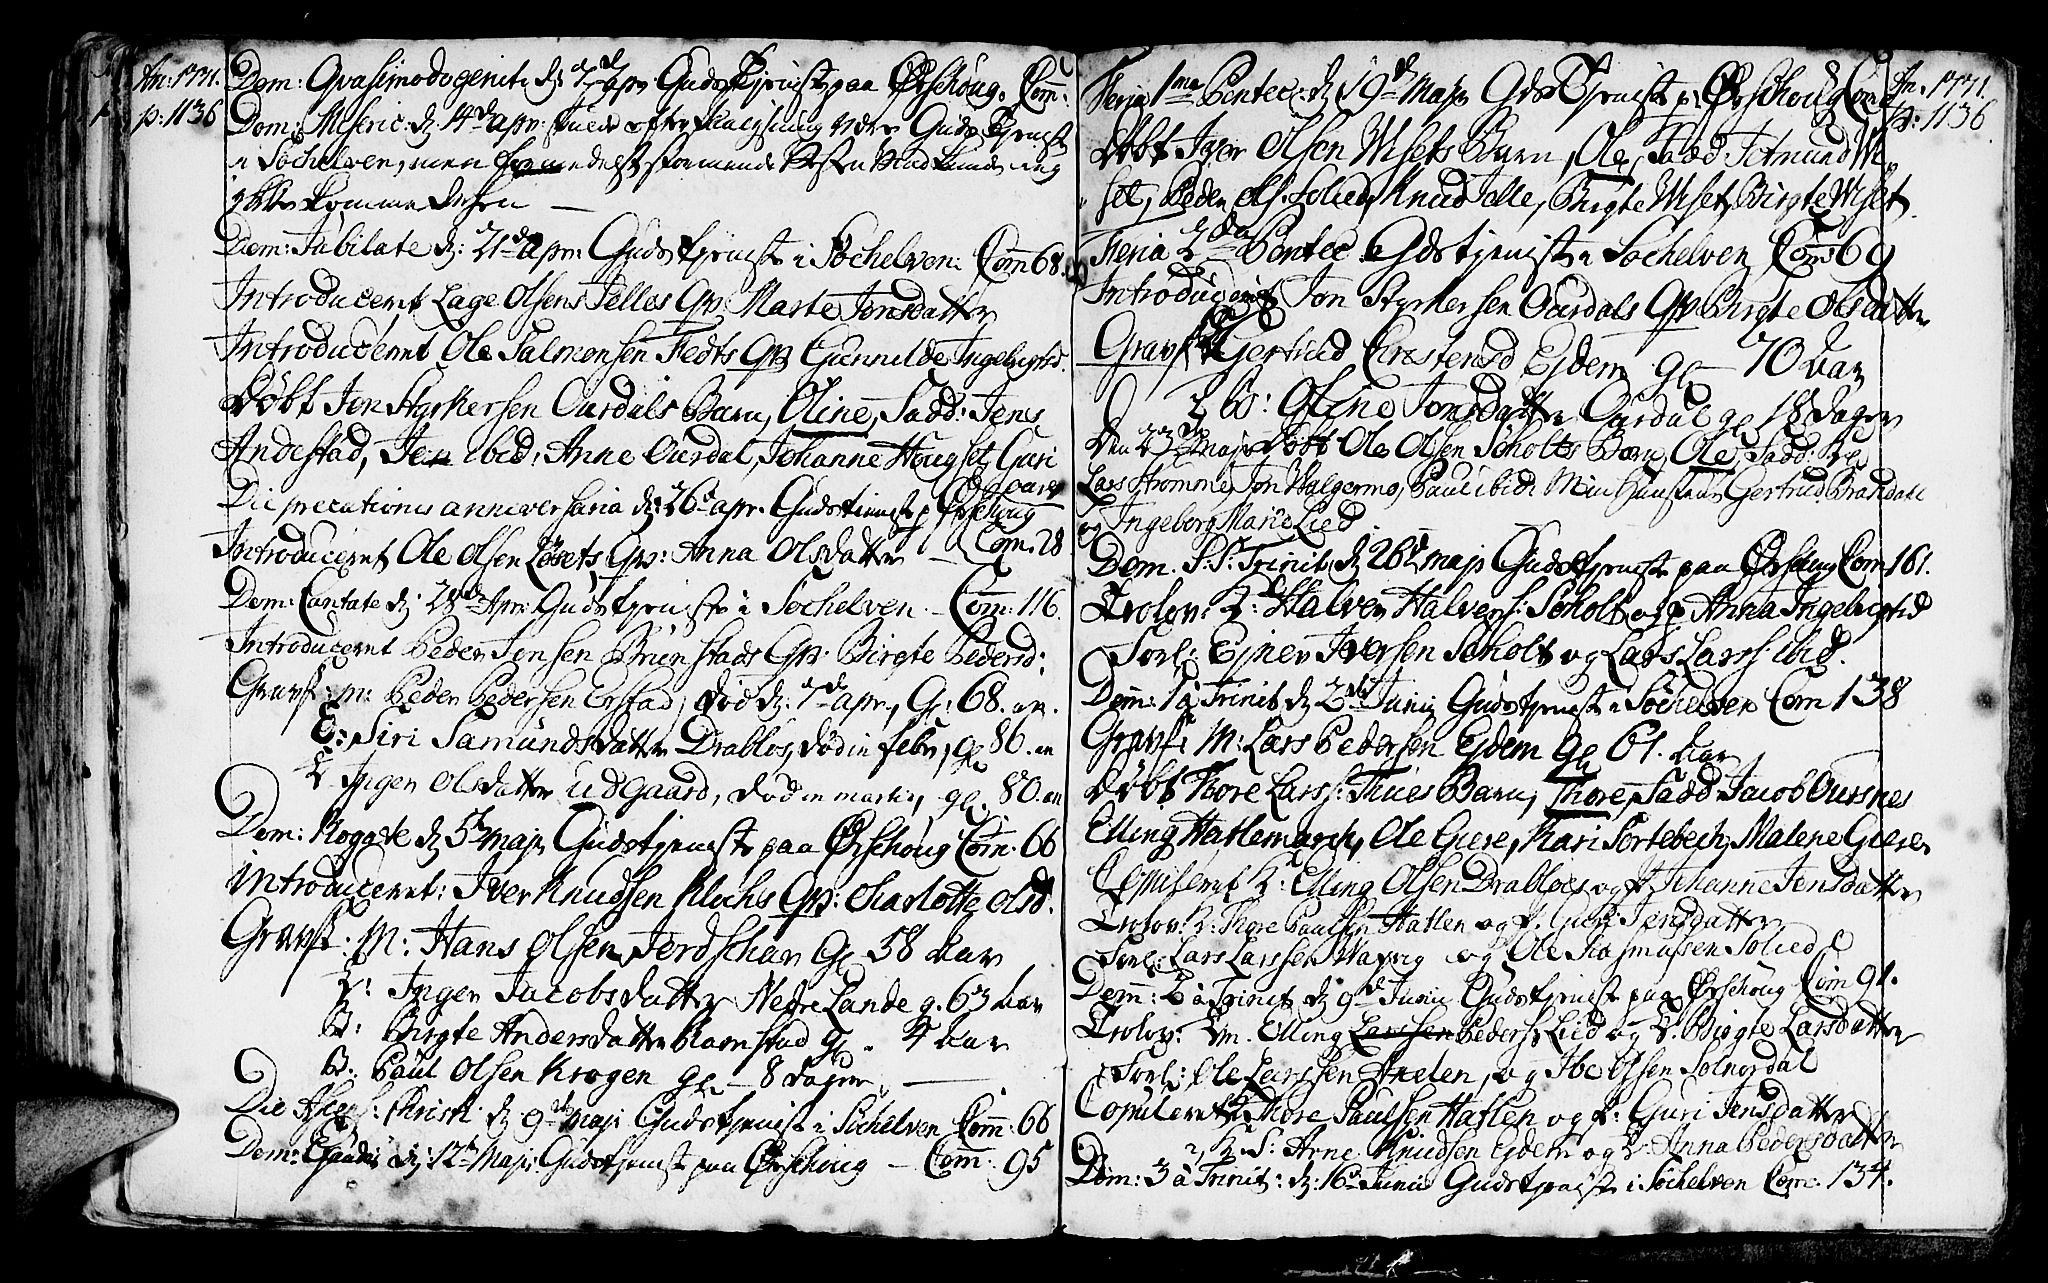 An: 1771.
p: 1136
Dom: Qvasimodogenite d: 7d apr: Guds Tjenist paa Ørschoug. Com:
Dom: Miseric: d 14d apr: skulde efter være Guds Tjenist
i Søchelven, men formedelst stormende kunde ieg
ikke komme
Dom: Jubilate d: 21d apr: Guds tjenist i Søchelven: Com 68.
Introduceret Lage Olsens Telles Qv: Marte Jonsdatter
Introduceret Ole Salmonsen Tedts Qv: Gunnilde Ingebrigtsd.
Døbt Jon Styrkersen Aurdals Barn, Oline, Fadd: Jens
Andestad, Jen ibid: Anne Aurdal, Johanne Hougset, Guri
Die precationis anniversaria d: 26d apr. Guds tienist p Ørschoug
Introduceret Ole Olsen Løsets Qv: Anna Olsdatter — Com. 28
Dom: Cantate d 28d Apr: Guds tjenist i Søchelven — Com: 116.
Introduceret Peder Jensen Brunstads Qv: Birgte Pedersd:
Gravf: M: Peder Pedersen Erstad, død d: 7d apr., G: 68. ar.
E: Siri Samundsdatter Drabløs, død in febr, g: 86. ar
E Inger Olsdatter Udgaard, død in martii, gl. 80. ar
Dom: Rogate d 5te maji Guds tjenist paa Ørschoug Com. 66
Introduceret: Iver Knudsen Klochs Qv: Charlotte Olsd.
Gravf: M: Hans Olsen Jerdschar gl 58 Aar
K: Inger Jacobsdatter Nedre Lande g. 63 Aar
B: Birgte Andersdatter Ramstad gl - 4 Aar
B. Paul Olsen Krogen gl. — 8 dage
Die Ascens: Christi d 9de maji Guds tjenist i Søchelven Com: 66
Dom: Exaudi d: 12te Maji Guds tjenist paa Ørschoug — Com: 95
An. 1771.
p: 1136
Feria 1ma Pentec: d 19d Maji Gds Tjenist p: Ørschoug Com
Døbt Iver Olsen Wisets Barn, Ole, Fadd Jetmund Wi-
set, Peder Ols: Solied, Knud Telle, Birgte Wiset, Birgte Wiset.
Feria 2da Pentec: Gds tjenist i Søchelven Com: 69
Introduceret Jon Styrkersen Aurdals Qv Birgte Olsdatter
Gravf: Gertrud Crestensd Ejdem gl — 70 Aar
2 B: Oline Jonsdatter Aurdal gl 18 dage
Den 23d Maji Døbt Ole Olsen Scholts Barn, Ole, Fadd:
Lars Strømme, Jon Walgermo, Paul ibid: Min Hustrue Gertrud Brasdale
og Ingeborg Marie Lied
Dom. S.S. Trinit: d 26d maji Guds tjenist paa Ørschoug Com 161.
Trolov: K: Halver Halvers: Scholt og p Anna Ingebrigtsd
Forl: Ejner Iversen Scholt og Lars Larss: ibid.
Dom: 1 a Trinit d 2d Junii Guds tjenist i Søchelven Com 138
Gravf: M: Lars Pedersen Ejdem gl 61. Aar
Døbt Thore Larss: Tues Barn, Thore, Fadd Jacob Aursnes
Elling Hatlemarch, Ole Giere, Kari Sortebech, Malene Giere
Copuleret K: Elling Olsen Drabløs og p Johanne Jensdatter
Trolov: K: Thore Paulsen Hatlen og p. Guri Jensdatter
Forl: Lars Larssen Waxvig og Ole Rasmussen Solied
Dom: 2 a Trinit d 9d Junii Guds tjenist paa Ørschoug Com 91.
Trolov: Em. Elling Larssen Peders: Lied og E. Birgte Larsdatter
Forl: Ole Larssen Amlen, og Ibe Olsen Solnørdal
Copuleret K Thore Paulsen Hatlen og p: Guri Jensdatter
2, K. S: Arne Knudsen Ejdem og E: Anna Pedersdatter
Dom: 3 a Trinit: d: 16d Junii Guds tjenist i Søchelven Com: 134.